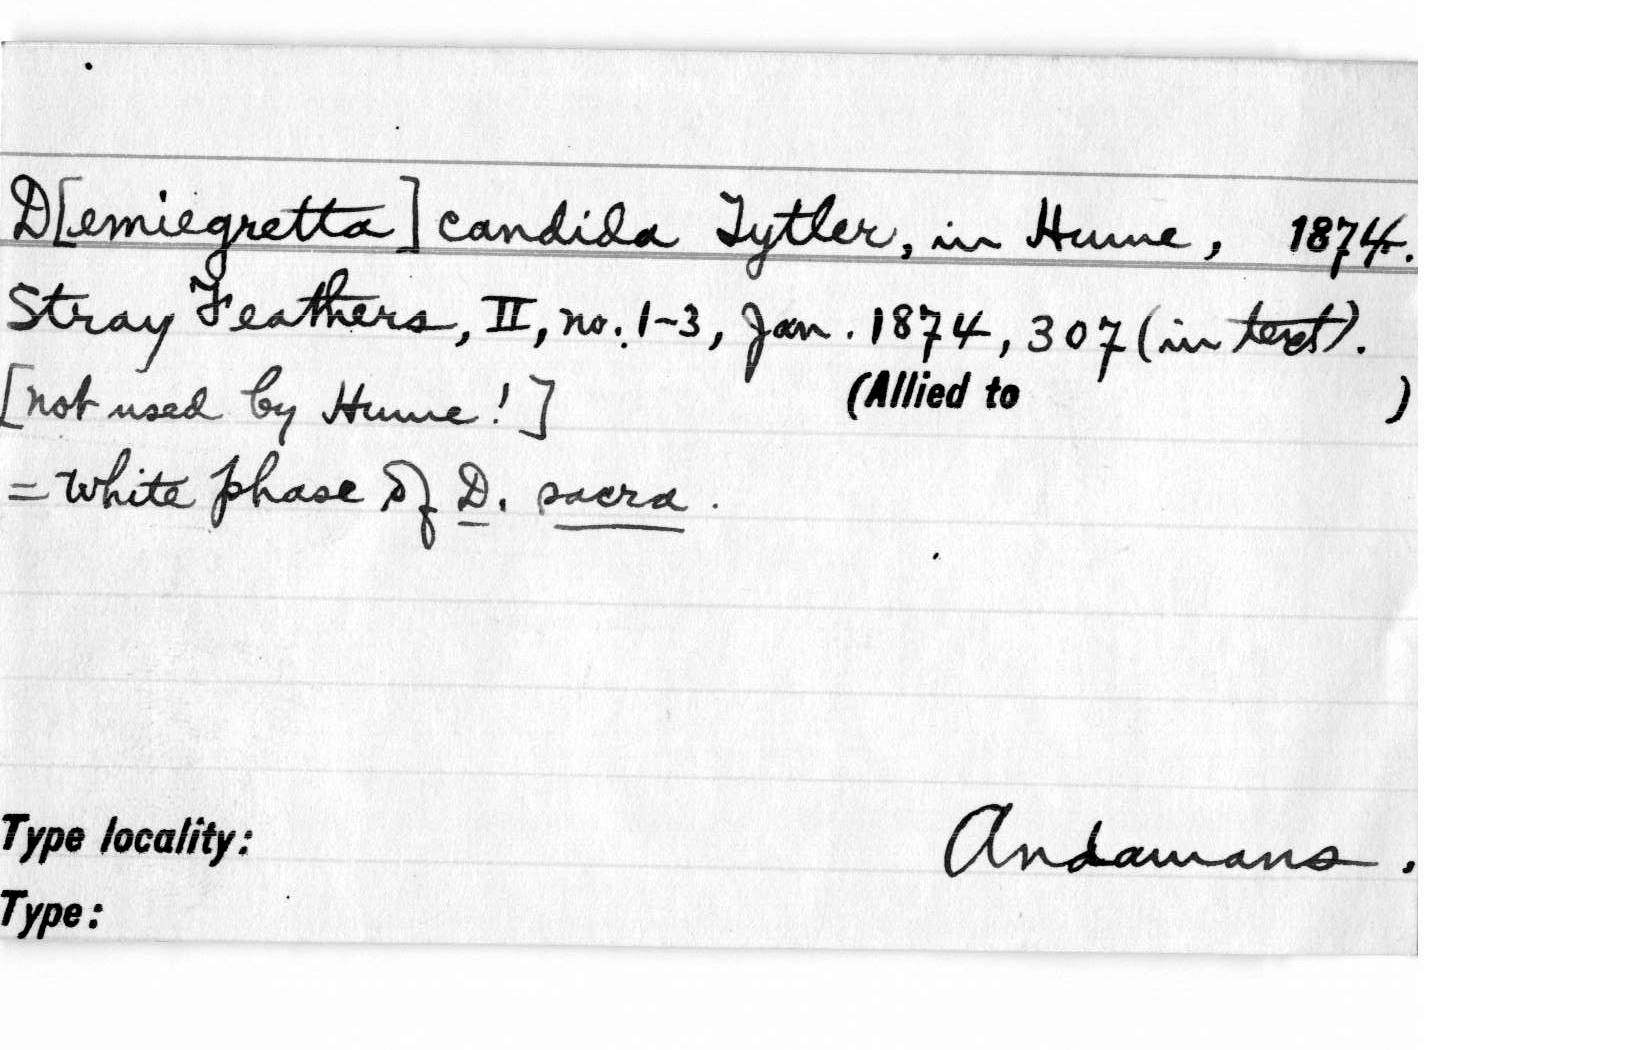 D[emiegretta] candida Tytler, in Hume, 1874.
Stray Feathers, II, no. 1-3, Jan. 1874, 307 (in text).
[not used by Hume!] (Allied to )
= white phase of D. sacra.
Type locality: Andamans.
Type: